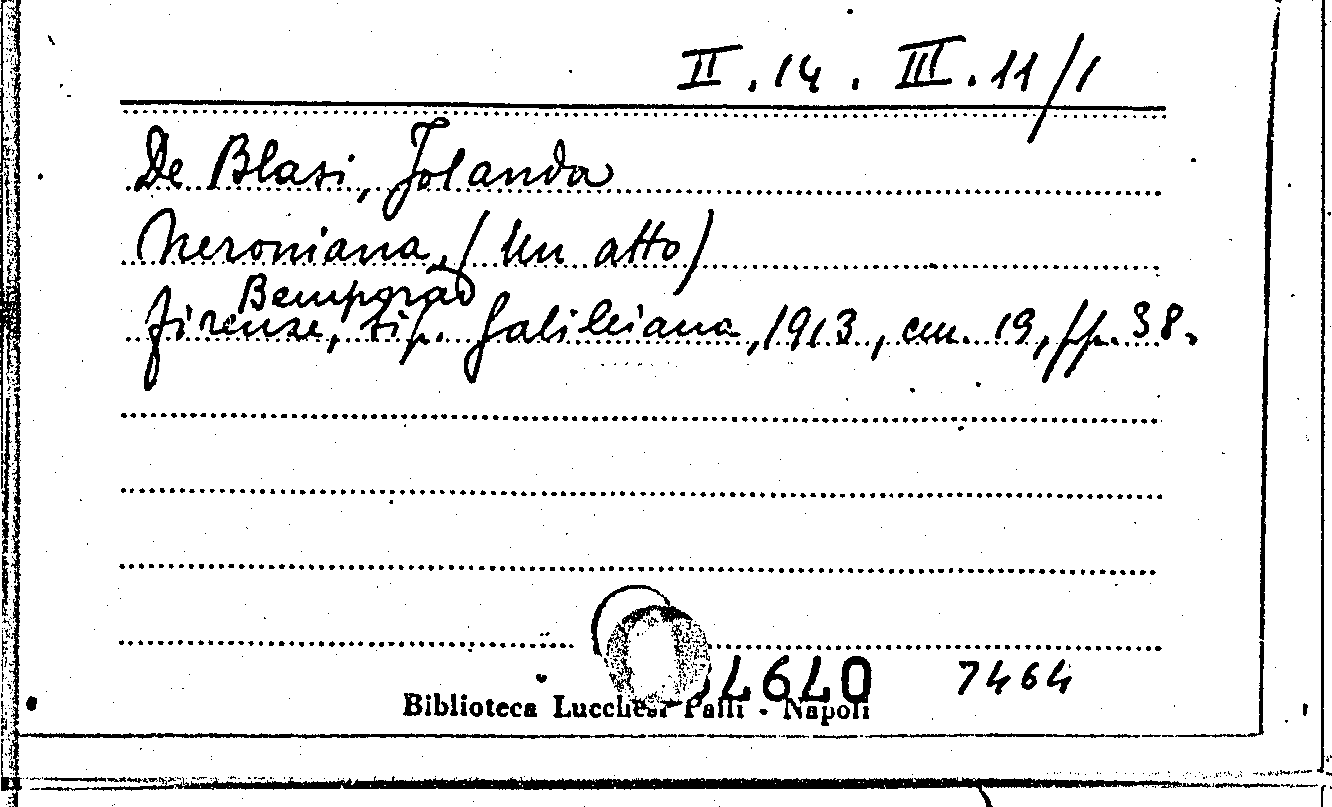 II.14. III.11/1
De Blasi, Jolanda
Neroniana. (Un atto)
Bemporad
Firenze, tip. Galileiana, 1913, cm. 19, pp. 38.
4640 7464
Biblioteca Lucchesi Palli - Napoli